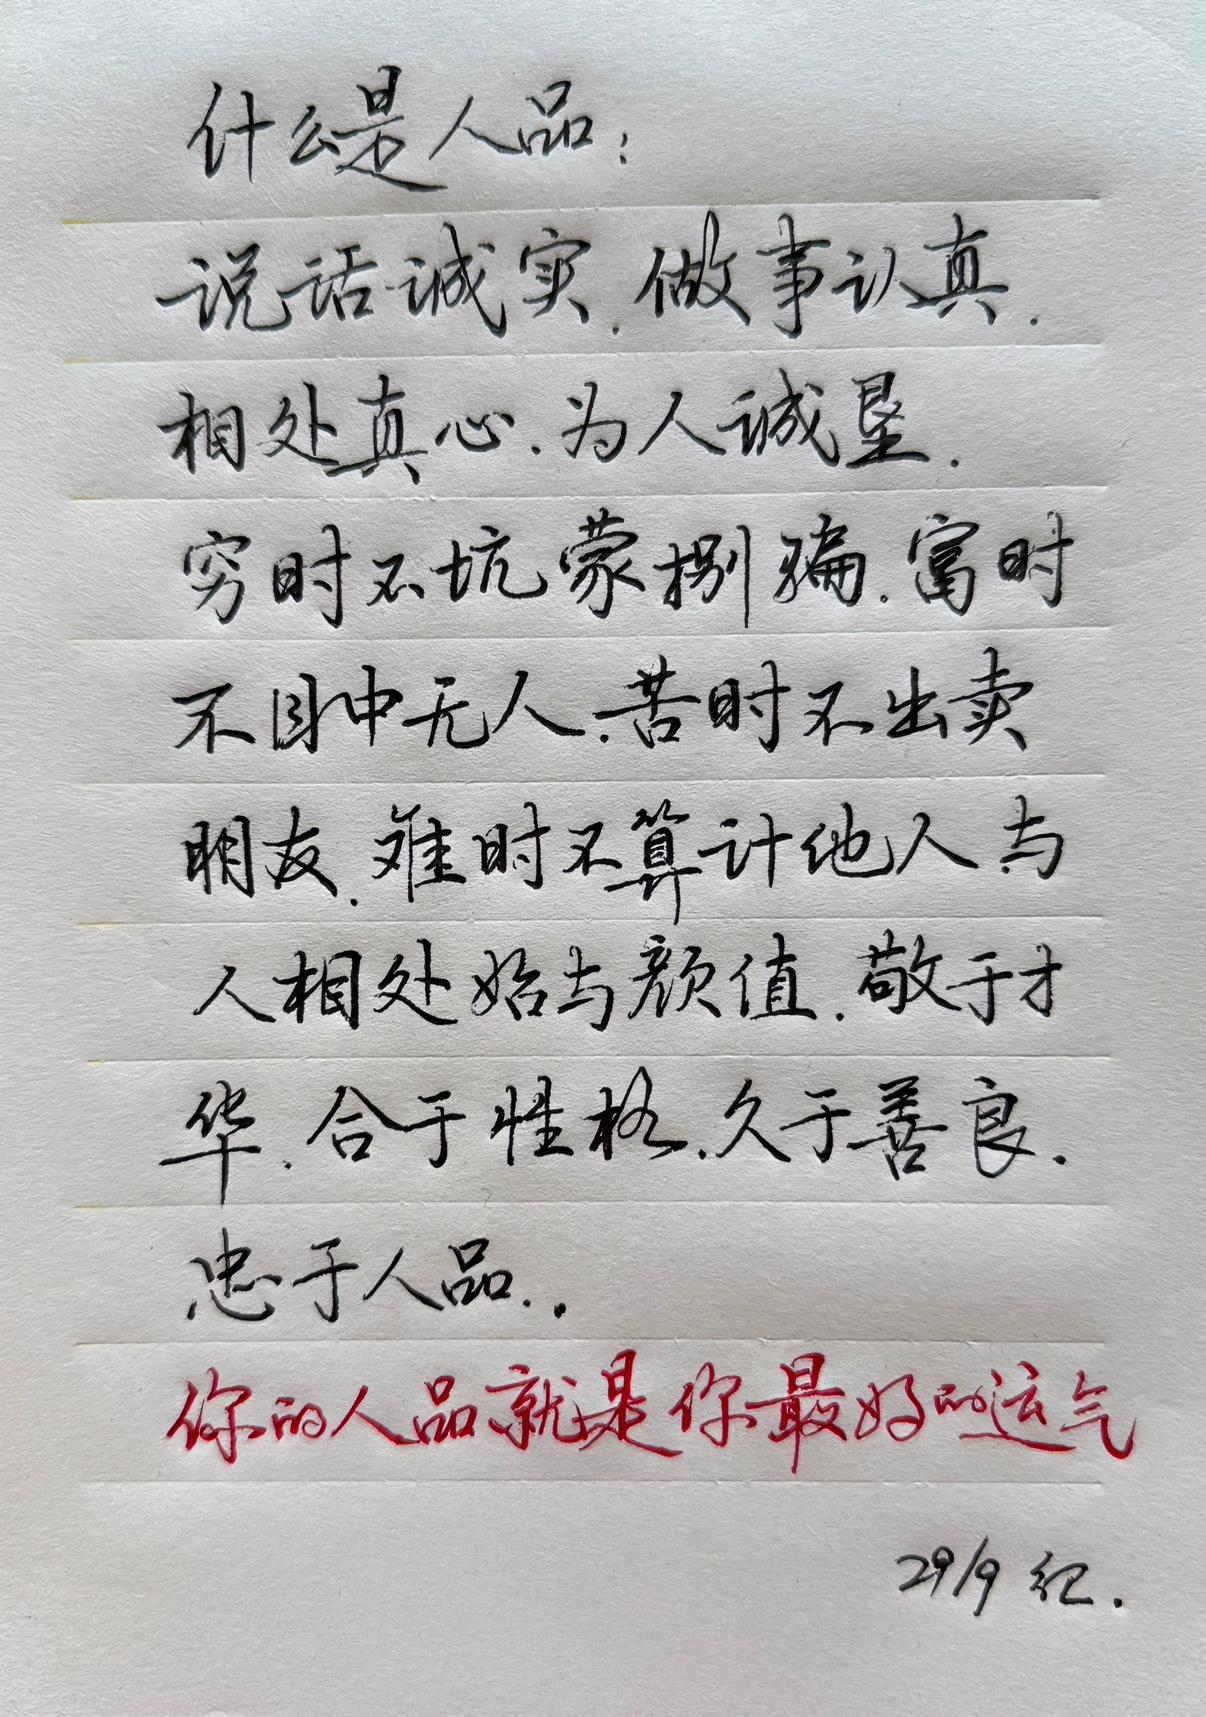 什么是人品：
说话诚实.做事认真.
相处真心.为人诚垦.
穷时不坑蒙捌骗.富时
不目中无人.苦时不出卖
朋友.难时不算计他人.与
人相处始与颜值.敬于才
华.合于性格.久于善良.
忠于人品..
你的人品就是你最好的运气
29/9 纪.